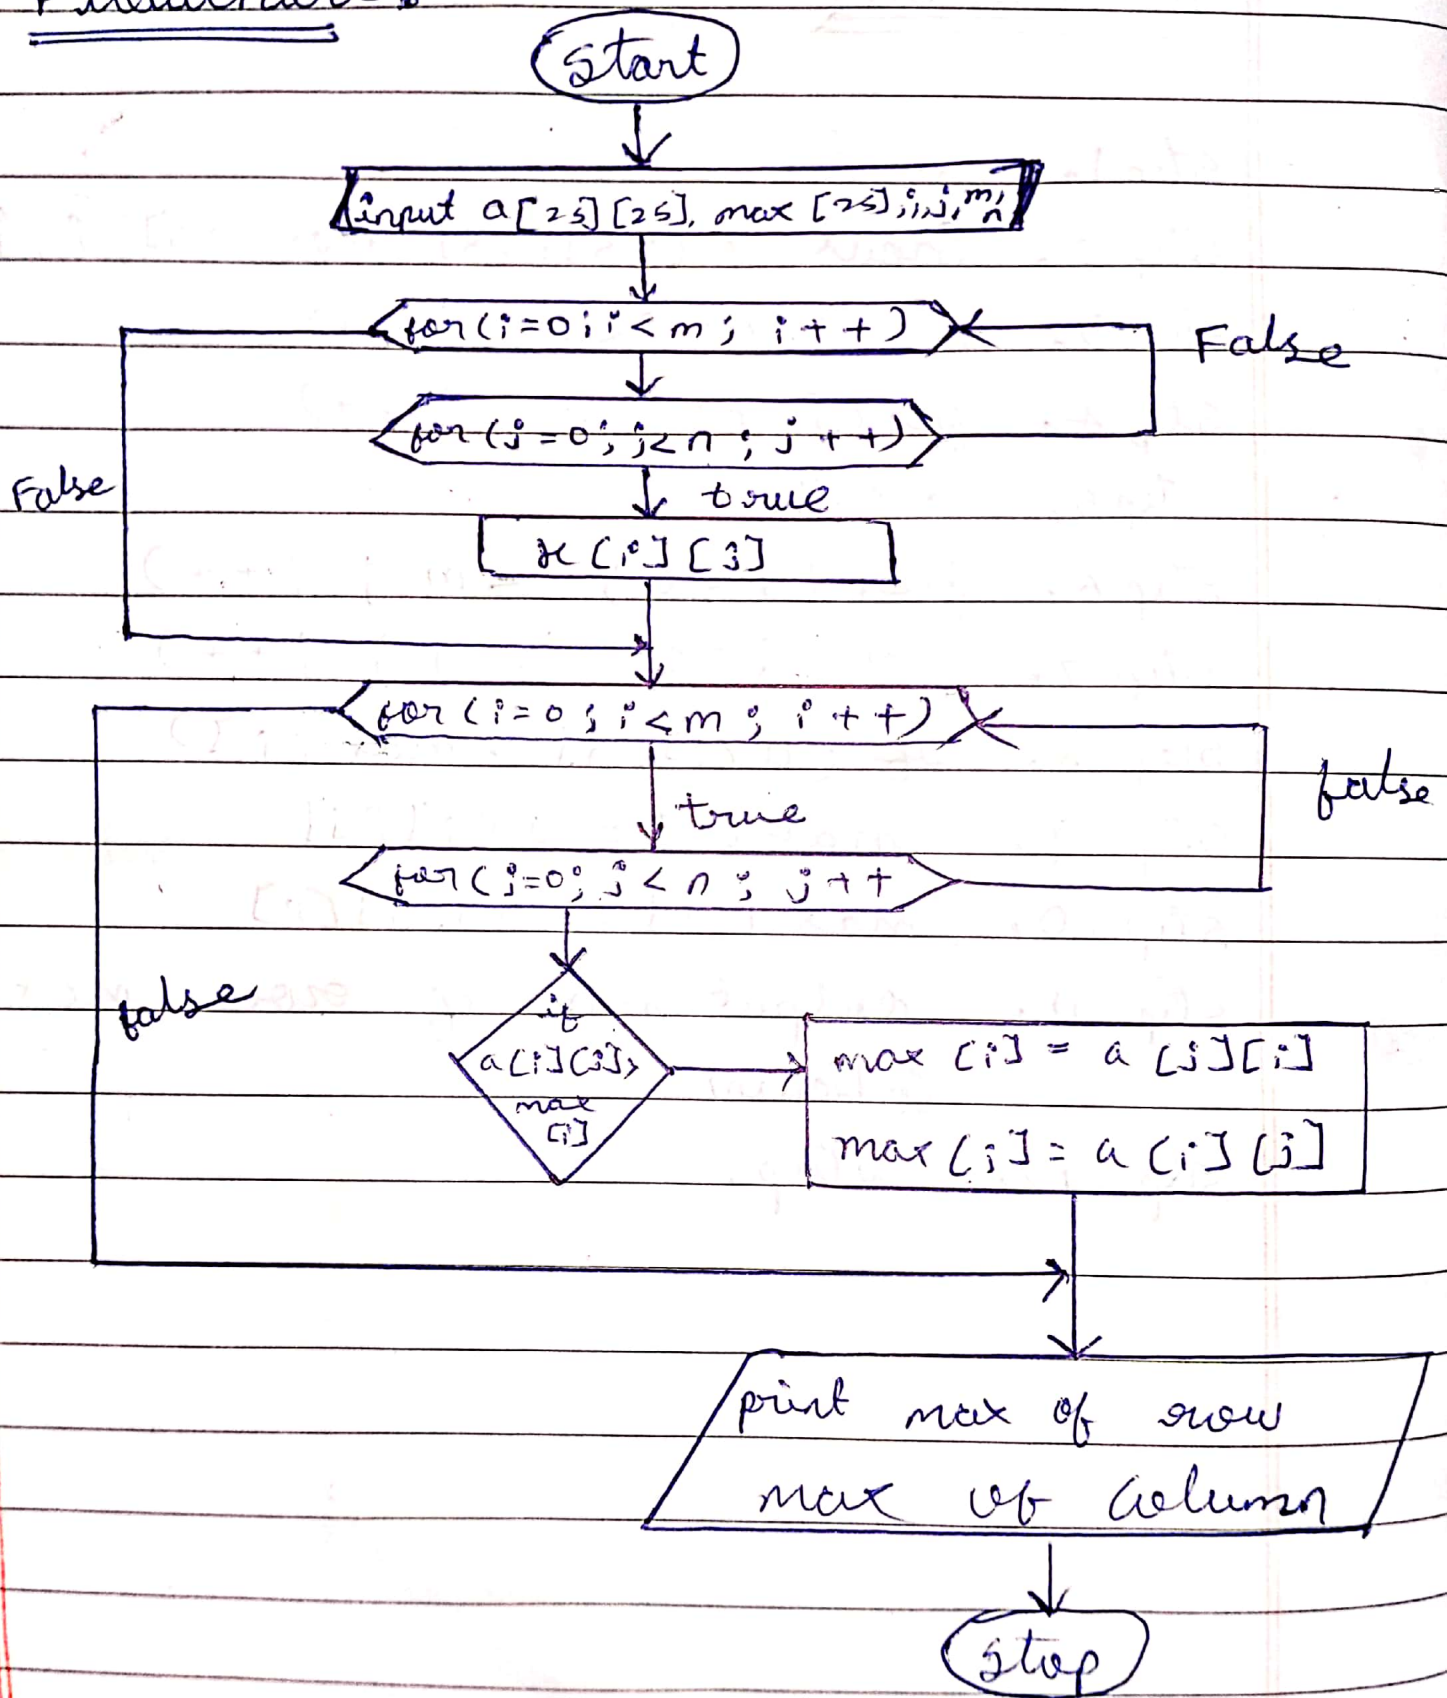 Start
input a[25][25], max [25], i, j, m, n
for(i=0; i<m; i++)
False
for(j=0; j<n; j++)
False
true
x[i][j]
for(i=0; i<m; i++)
true
false
for(j=0; j<n; j++
false
if
a[i][j]>
max
[i]
max [i] = a [j][i]
max[i] = a [i][j]
print max of row
max of column
stop